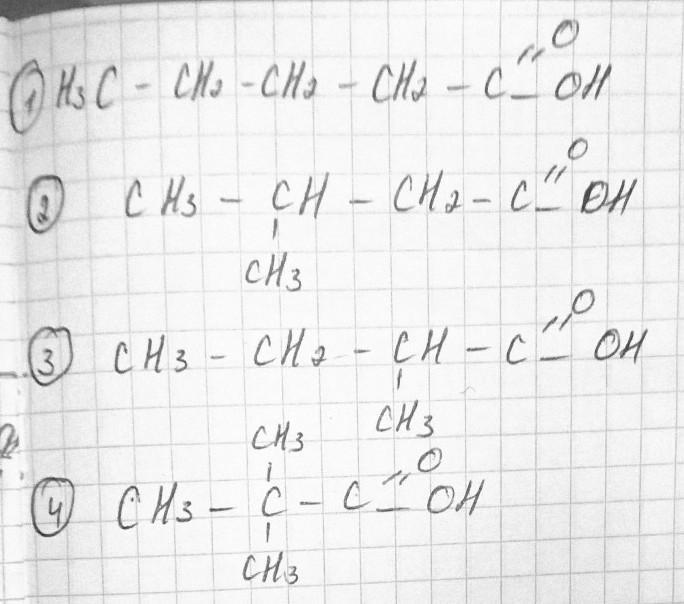 ① H3C - CH2 - CH2 - CH2 - C = O - OH
② CH3 - CH - CH2 - C = O - OH
CH3
③ CH3 - CH2 - CH - C = O - OH
CH3
CH3
④ CH3 - C - C = O - OH
CH3